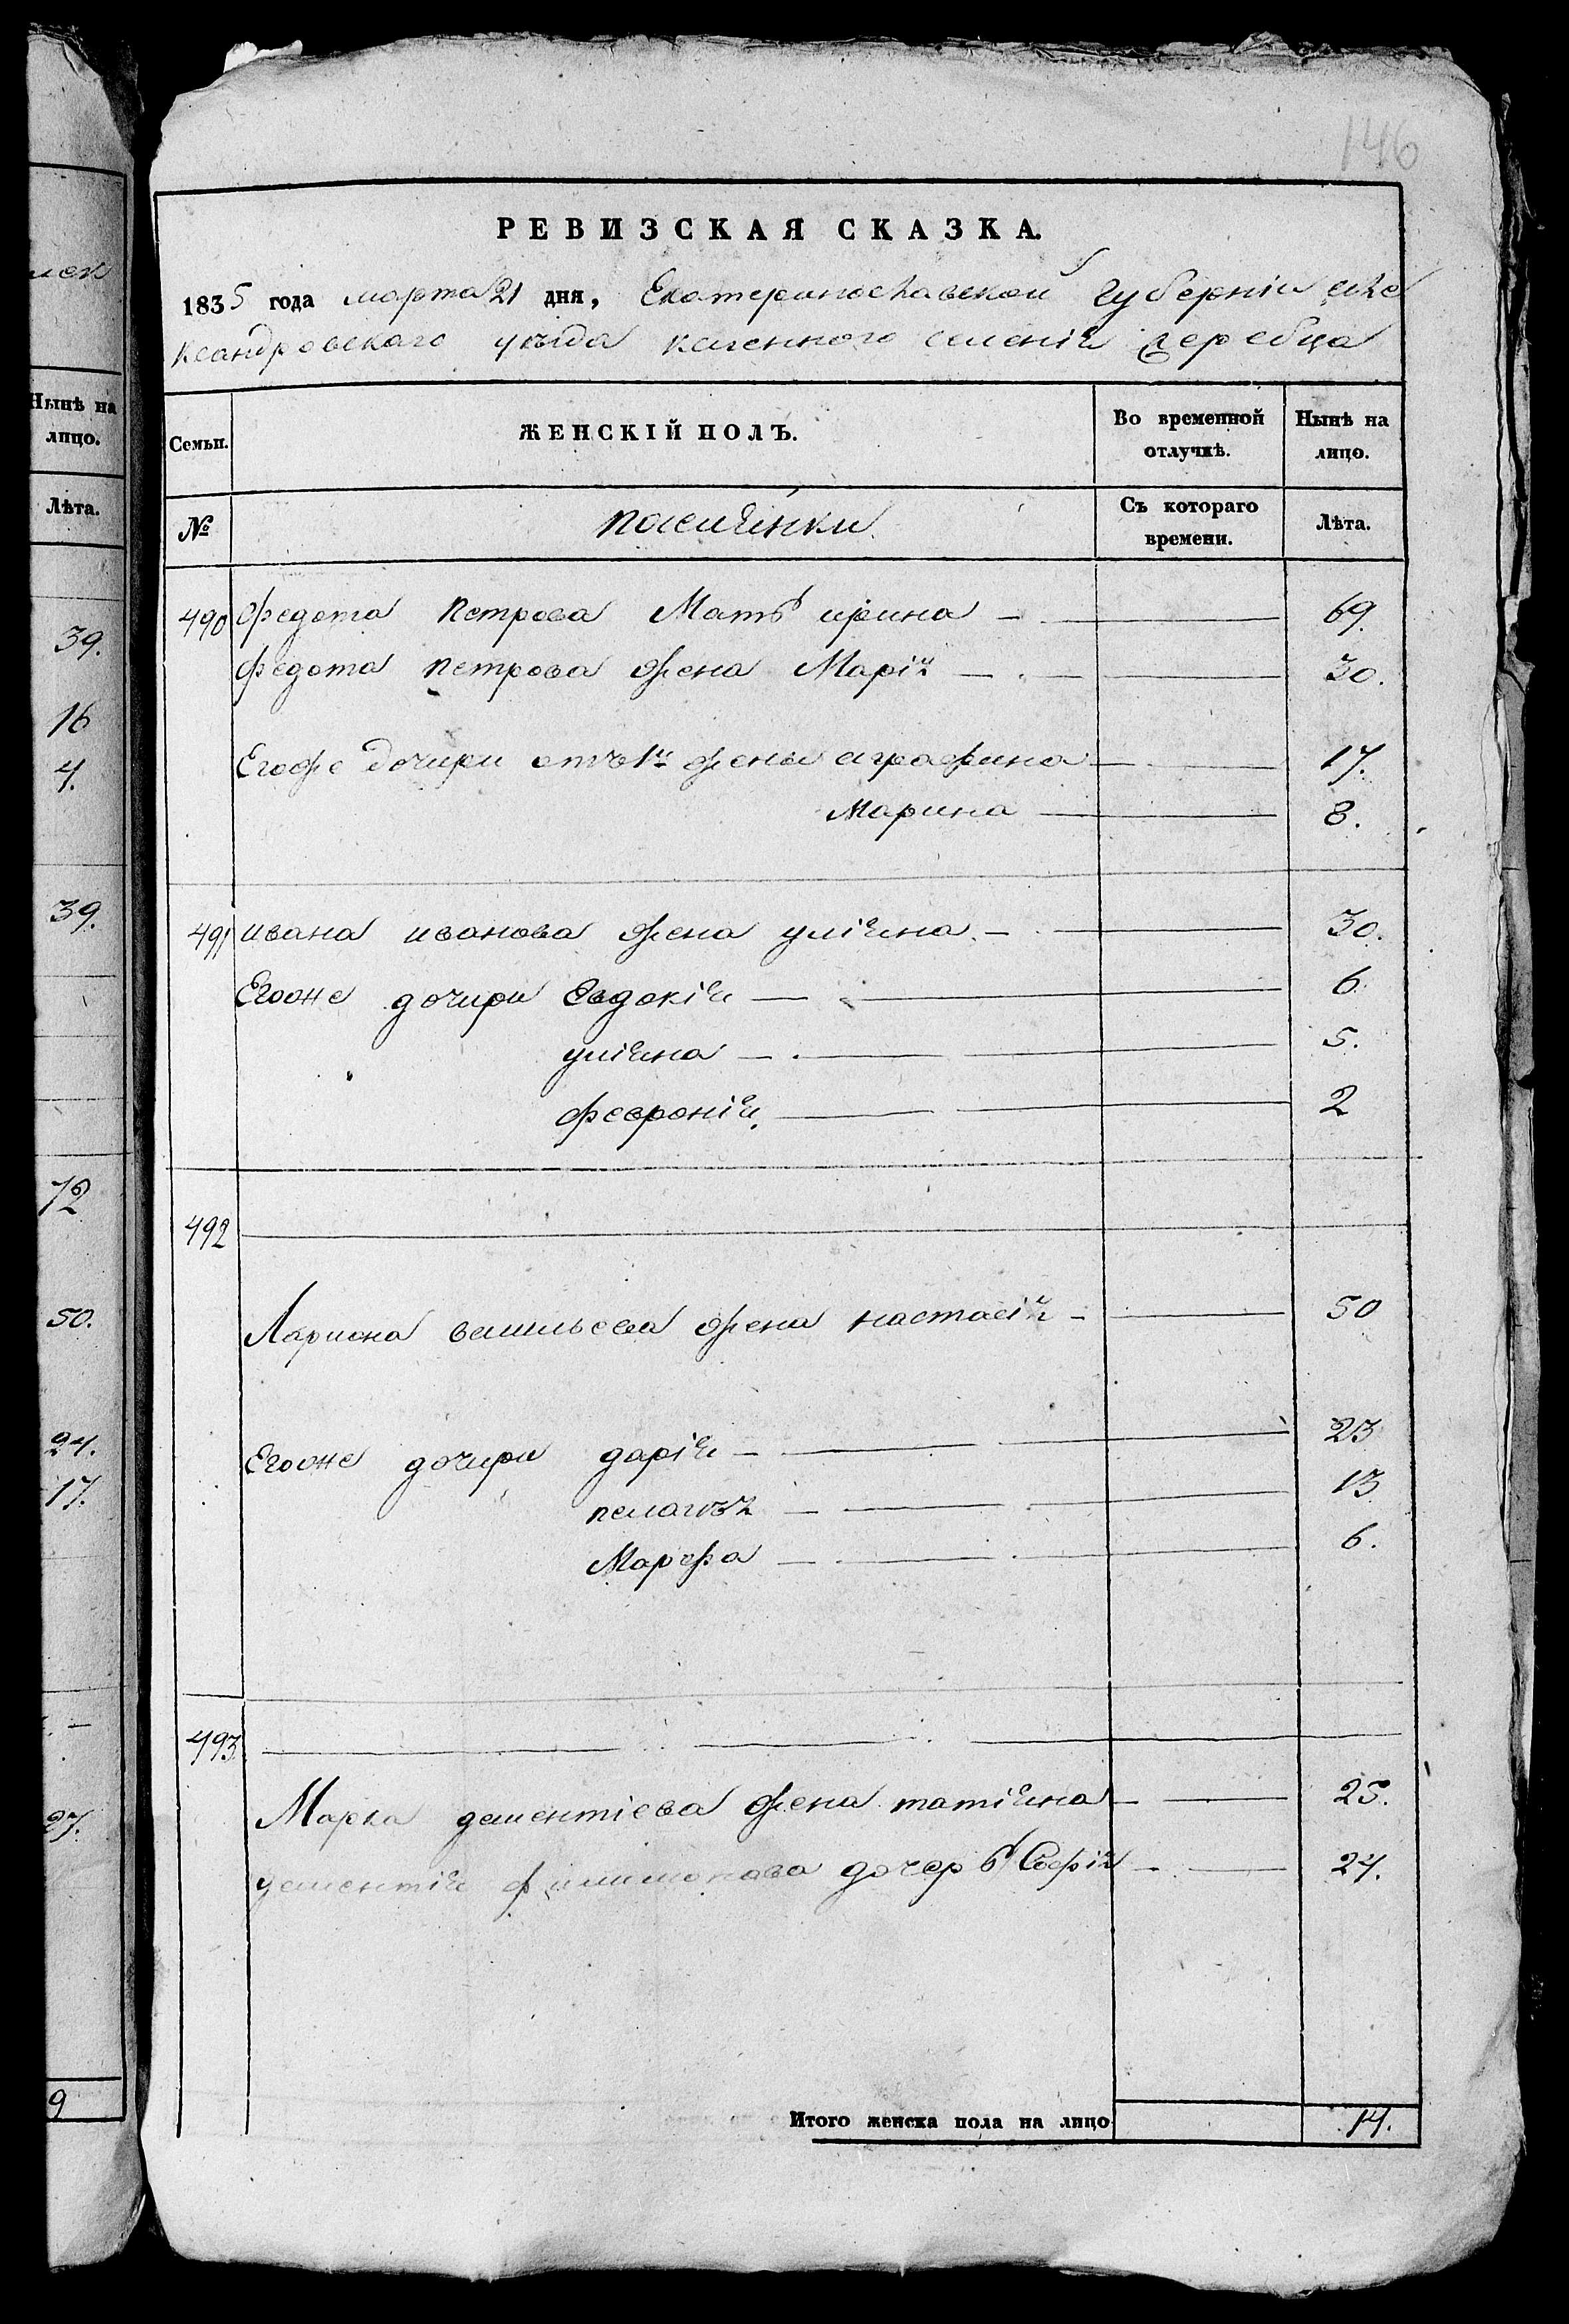 146
РЕВИЗСКАЯ СКАЗКА.
1835 года марта 21 дня, Екатеринославской Губерніи але
ксандровскаго уезда казенного селенія жеребца
Семьи.
ЖЕНСКІЙ ПОЛЪ.
Во временной отлучкѣ.
Нынѣ на лицо.
№
поселянки.
Съ котораго времени.
Лѣта.
490 Федота Петрова Мать ирина — 69.
Федота петрова жена Марія — 30.
Егоже дочири отъ 1й жены аграфина — 17.
Марина — 8.
491 ивана иванова жена уліяна. — 30.
Егоже дочири Евдокія — 6.
уліяна — 5.
февронія. — 2
492
Лариона васильева жена настасія — 50
Егоже дочири дарія — 23
пелагея — 13
Марфа — 6.
493
Марка дементіева жена татіяна — 25.
дементія филимонава дочерь Софія — 24.
Итого женска пола на лицо 14.
Нынѣ на
лицо.
Лѣта.
39.
16
4.
39.
72
50.
24.
17.
27.
9